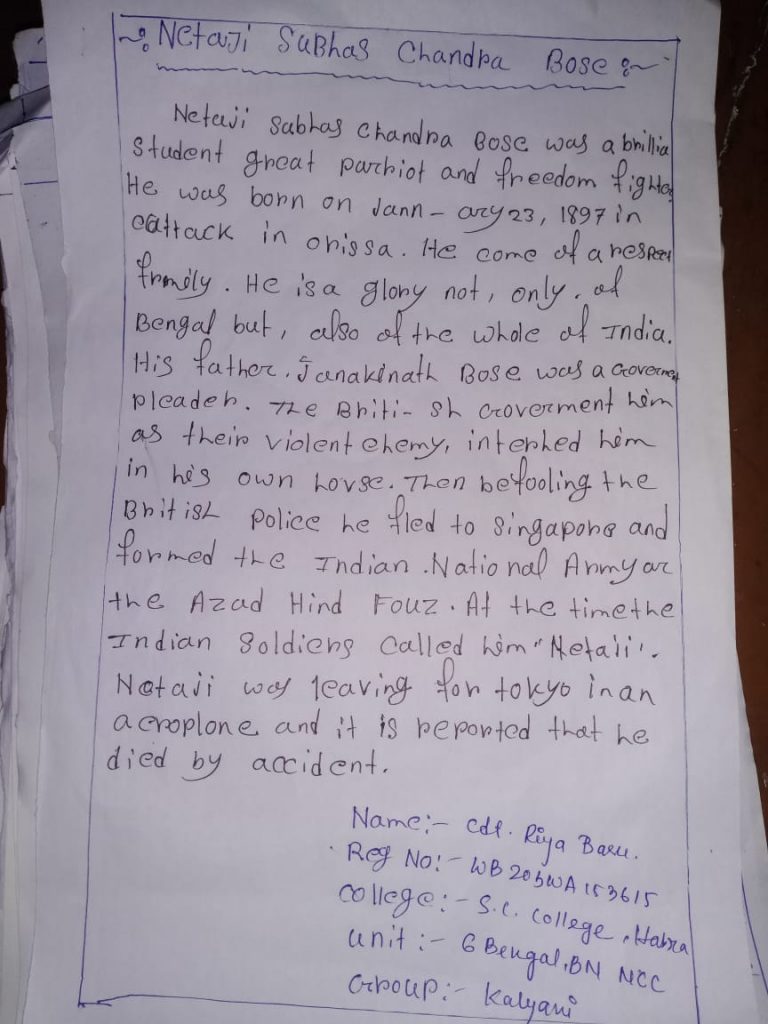 ~: Netaji Subhas Chandra Bose :~
Netaji Subhas Chandra Bose was a brillia
Student great partriot and freedom fighter
He was born on Jann - ary 23, 1897 in
cattack in orissa. He come of a respect
frmily. He is a glory not, only. of
Bengal but, also of the whole of India.
His father. Janakinath Bose was a Governmet
pleader. The Briti- sh Goverment him
as their violent ehemy, interhed him
in his own house. Then befooling the
British police he fled to Singapore and
formed the Indian .National Army or
the Azad Hind Fouz. At the time the
Indian Soldiers called him "Netaji".
Netaji was leaving for tokyo in an
acroplone and it is reported that he
died by accident.
Name:- Cdt. Riya Basu.
Reg No:- WB20SWA153615
College:- S.C. College, Habra
Unit:- 6 Bengal, BN NCC
Group:- Kalyani